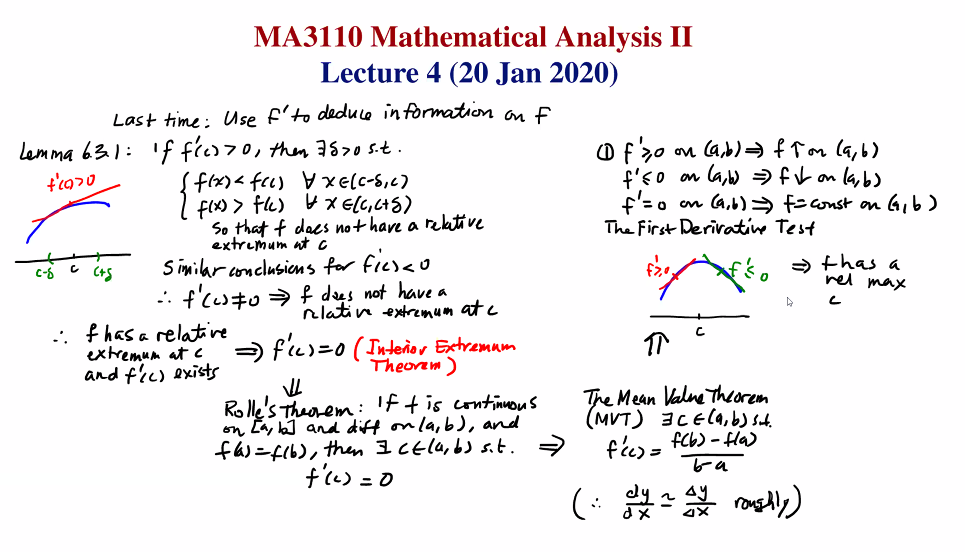 MA3110 Mathematical Analysis II
Lecture 4 (20 Jan 2020)
Last time: Use f' to deduce information on f
Lemma 6.3.1: If f'(c) > 0, then ∃ δ > 0 s.t.
f'(c) > 0
{ f(x) < f(c) ∀ x ∈ (c-δ, c)
f(x) > f(c) ∀ x ∈ (c, c+δ)
So that f does not have a relative
extremum at c
c-δ c c+δ
Similar conclusions for f'(c) < 0
∴ f'(c) ≠ 0 ⇒ f does not have a
relative extremum at c
∴ f has a relative
extremum at c
and f'(c) exists
⇒ f'(c) = 0 (Interior Extremum
Theorem)
⇓
Rolle's Theorem: If f is continuous
on [a, b] and diff on (a, b), and
f(a) = f(b), then ∃ c ∈ (a, b) s.t. ⇒
f'(c) = 0
① f' ≥ 0 on (a, b) ⇒ f ↑ on (a, b)
f' ≤ 0 on (a, b) ⇒ f ↓ on (a, b)
f' = 0 on (a, b) ⇒ f = const on (a, b)
The First Derivative Test
f' ≥ 0 f' ≤ 0
⇒ f has a
rel max
c
c
⇑
The Mean Value Theorem
(MVT) ∃ c ∈ (a, b) s.t.
f'(c) = f(b) - f(a) / b - a
(∴ dy/dx ≈ Δy/Δx roughly)